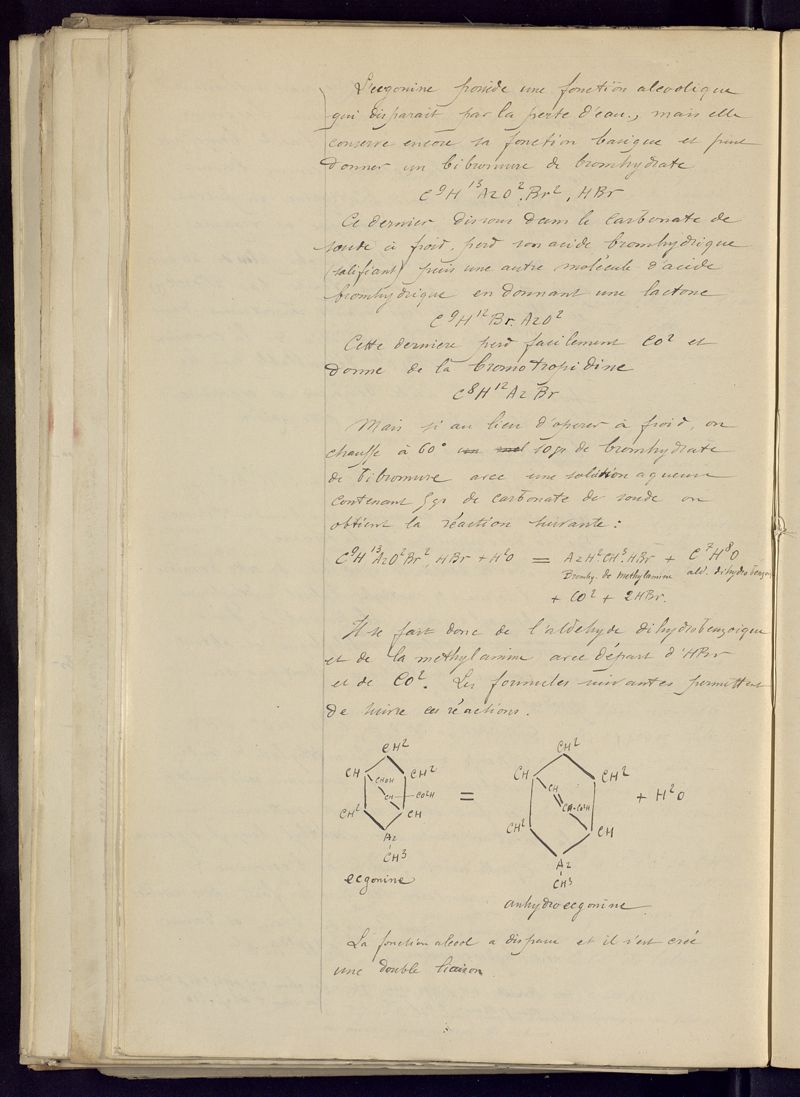 L'ecgonine possède une fonction alcoolique
qui disparait par la perte d'eau, mais elle
conserve encore sa fonction basique et peut
donner un bibromure de bromhydrate
C⁹H¹³AzO².Br², HBr
Ce dernier dissous dans le carbonate de
soude à froid, perd son acide bromhydrique
(salifiant) puis une autre molécule d'acide
bromhydrique en donnant une lactone
C⁹H¹²Br.AzO²
Cette dernière perd facilement CO² et
donne de la bromotropidine
C⁸H¹²Az Br
Mais si au lieu d'opérer à froid, on
chauffe à 60° 10gr de bromhydrate
de bibromure avec une solution aqueuse
contenant 5gr de carbonate de soude on
obtient la réaction suivante :
C⁹H¹³AzO²Br², HBr + H²O = AzH².CH³.HBr + C⁷H⁸O
Bromhy. de methylamine ald. dihydrobenzoi
+ CO² + 2HBr.
Il se fait donc de l'aldehyde dihydrobenzoique
et de la méthylamine avec départ d'HBr
et de CO². Les formules suivantes permettent
de suivre ces réactions.
CH²
CH CHOH CH²
CH CO²H
CH² CH
Az
CH³
ecgonine
=
CH²
CH CH CH²
CH-CO²H
CH² CH
Az
CH³
anhydroecgonine
+ H²O
La fonction alcool a disparu et il s'est créé
une double liaison.